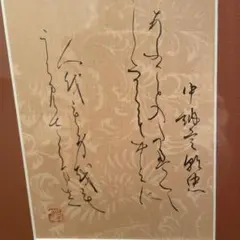 中納言朝忠
あふことのたえて
しなくはなか〳〵に
人をも身をも
うらみさらまし